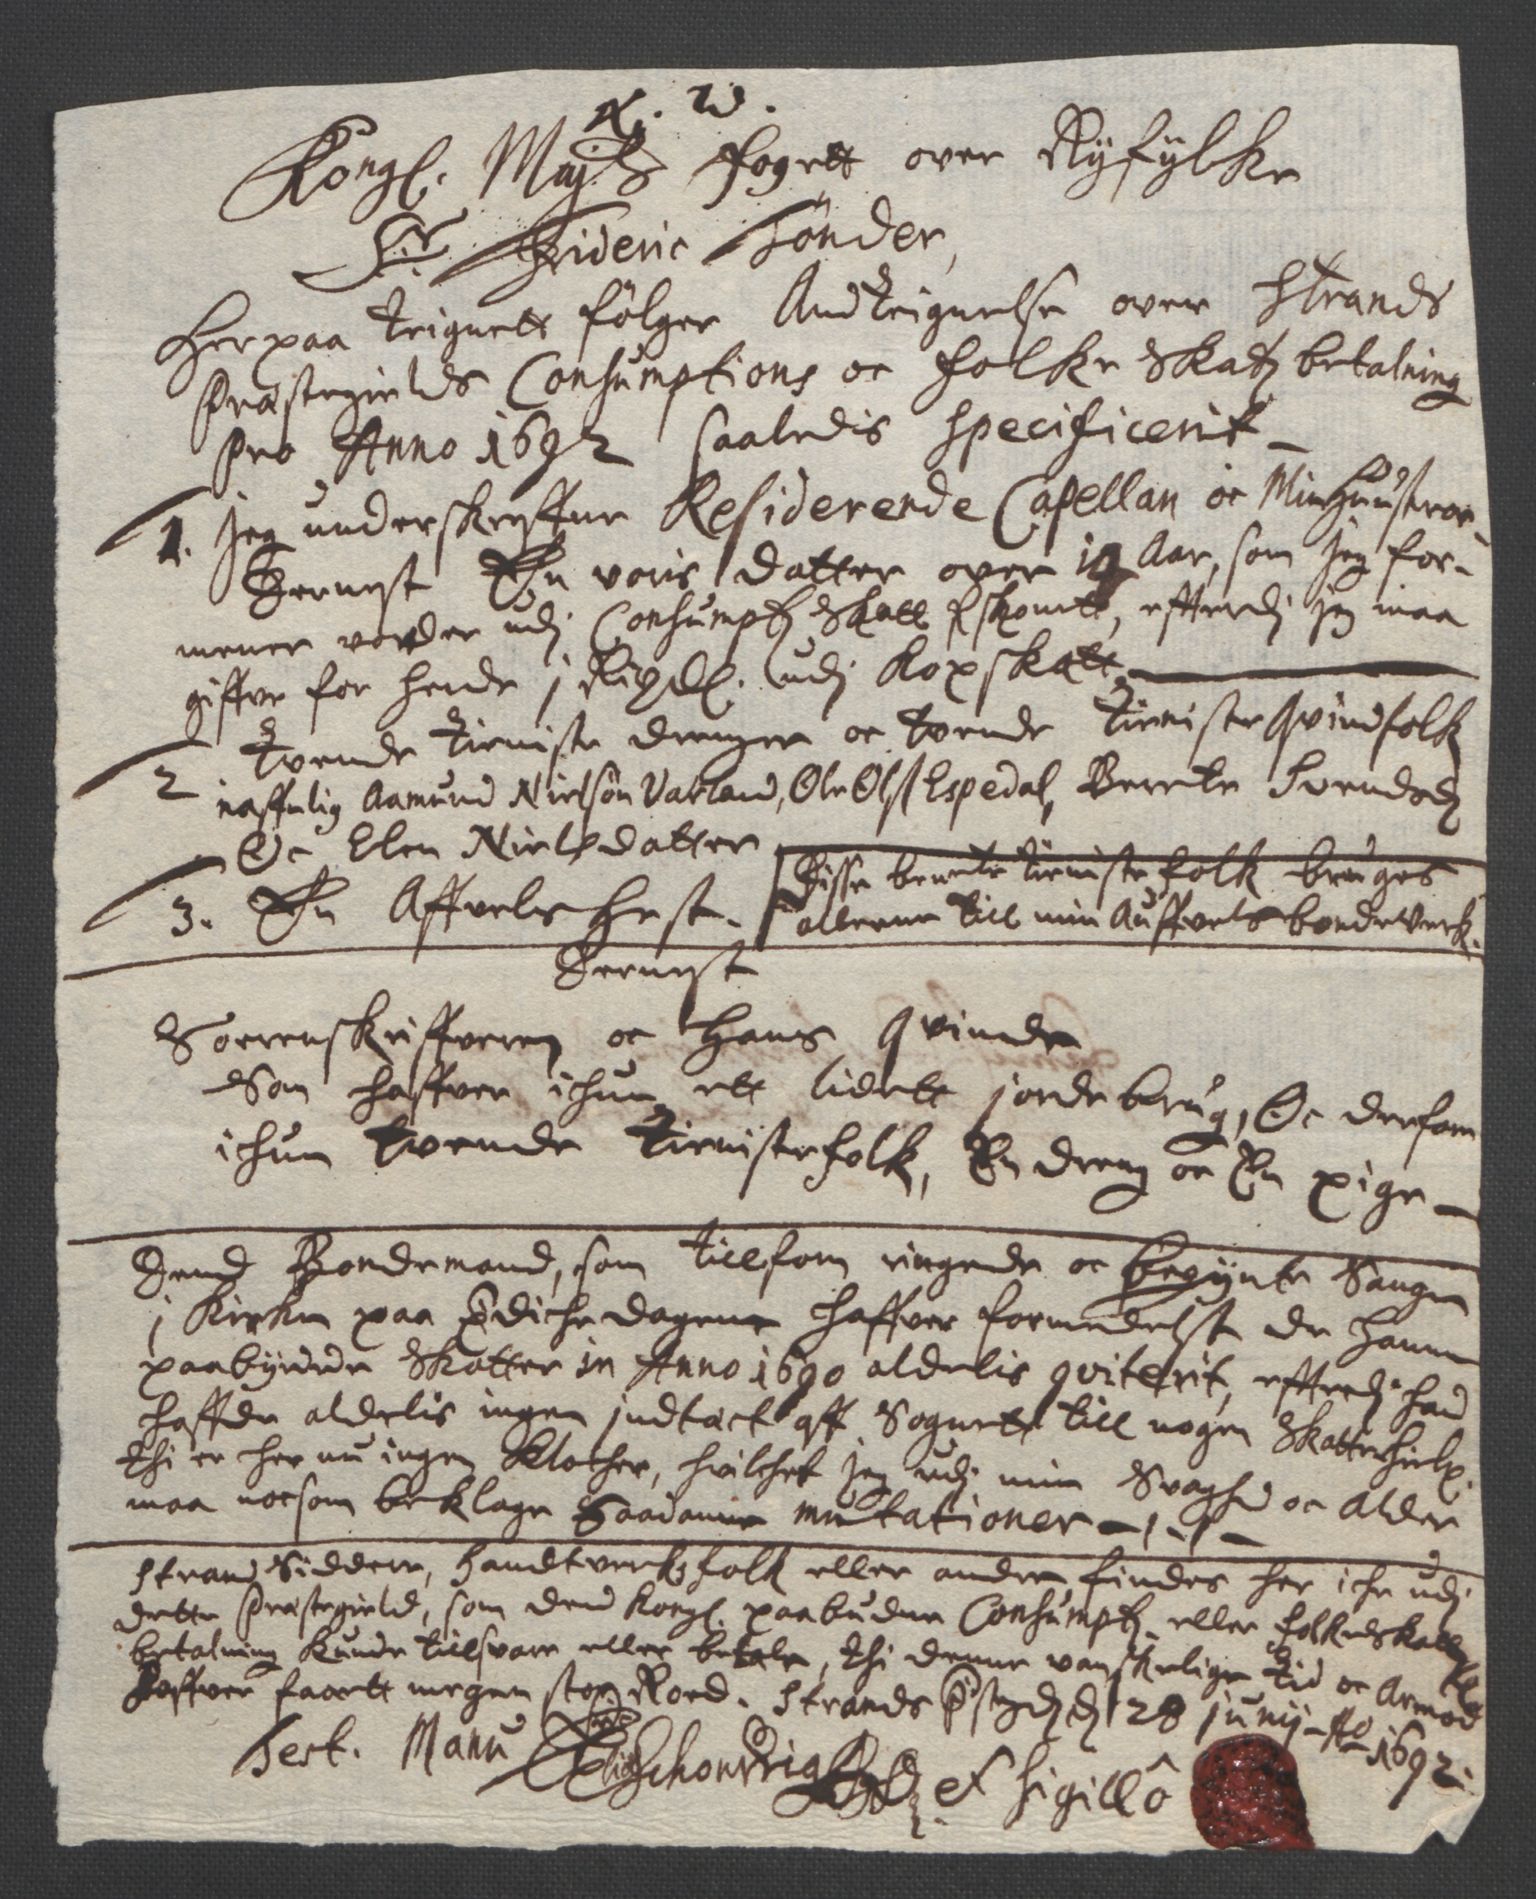 N. 20.
Kongl. Maj:ts fogett over Ryfylke
Sr. Frideric Tønder,
Herpaa teignett følger Andteignelse over Strands
Præstegields Consumptions oc folke Skatz betalning
pro Anno 1692 saaledis specificerit
1. Jeg underskreffne Residerende Capellan oc Min Hustroe
Dernest En voris datter over 10 Aar, som jeg for-
mener vorder udj Consumptz Skatt skonitt, efterdj jeg maa
giffve for hende j Rixdl. udj Kopskatt
2 Tvende tieniste drenger oc tvende tieniste qvindfolk
naffnlig Aamund Nielsøn Varland, Ole Olss Espedal, Berete Svendsd
Oc Elen Nielsdatter
3. En Affvels Hest. Disse benente tieniste folk bruges
allerene till min Auffvels bonde verk.
Dernest
Sorenskriffveren oc hans qvinde
Som haffver ichun ett lidett jorde brug, Oc derfor
ichun tvende tienistefolk, En dreng oc En pige
Dend Bondemand, som tillforn ringede oc begynte Sangen
j Kirken paa prædiche dagene haffver formedelst de hannem
paabydede Skatter in Anno 1690 aldelis qviterit, efterdj hand
haffde aldelis ingen indtæct aff Sognet till nogen Skatte hielp.
thi er her nu ingen Klocher, hvilchet jeg udj min Svaghed oc Alder
maa nocsom beklage Saadanne mutationer
Strand Siddere, Handtverks folk eller andre, findes her iche udj
dette Præstegield, som dend Kongl. paabudne Consumptz eller folkeskattes
betalning kunde tillsvare eller betale, thi denne vanskelige tid oc Armod
haffver faaett megen stor Roed. Strands Pstgd d 28 junij Ao 1692.
Test. Manu et sigillô